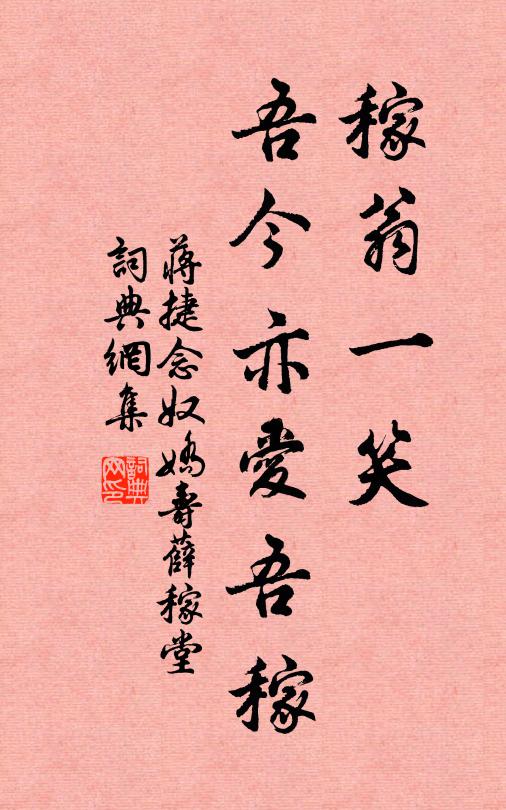 稼翁一笑
吾今亦愛吾稼
蔣捷念奴嬌壽薛稼堂
詞典網集
詞典网印